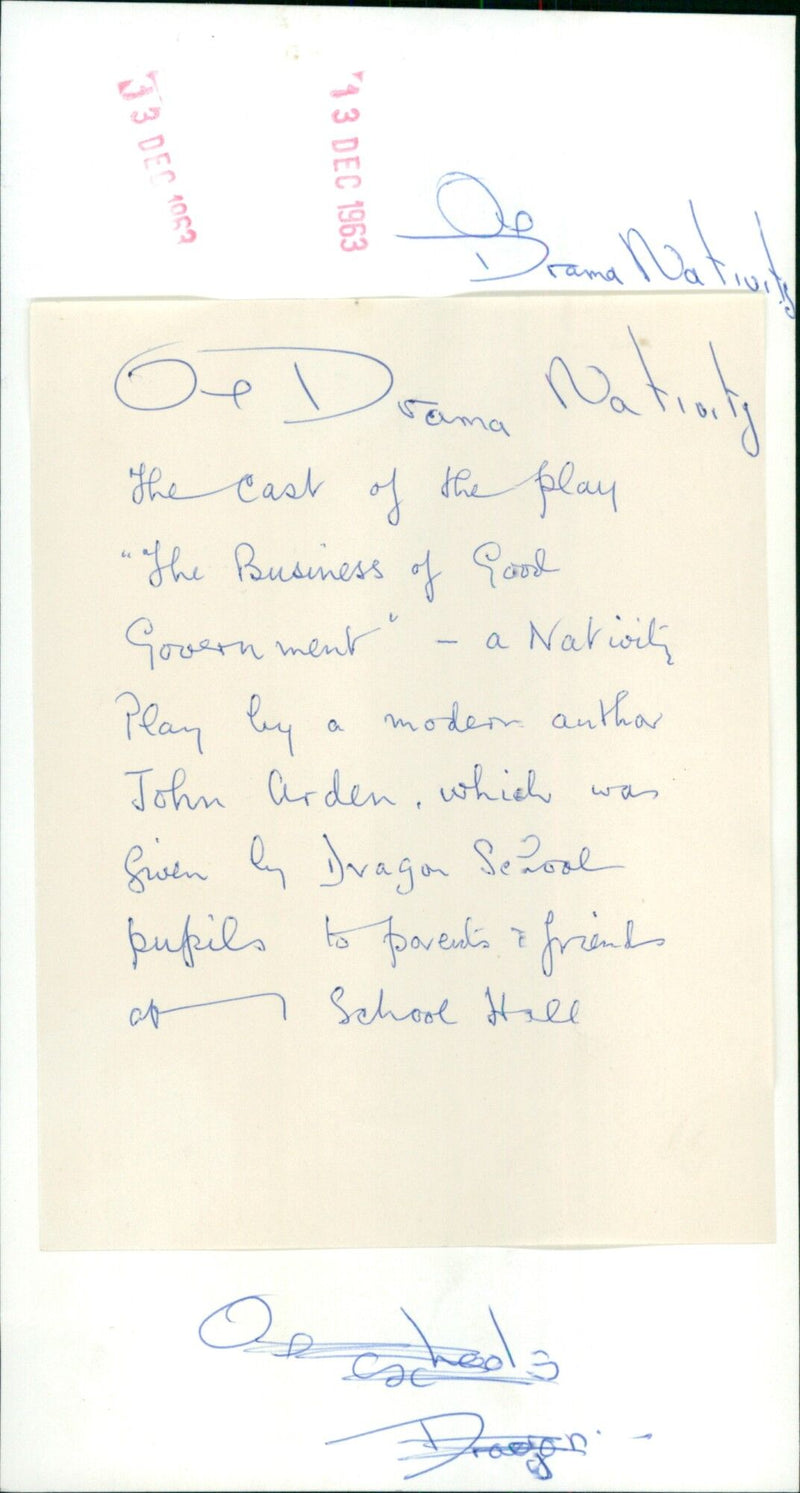 13 DEC 1963
13 DEC 1963
Ox
Drama Nativity
Ox Drama Nativity
The cast of the play
"The Business of Good
Government" - a Nativity
Play by a modern author
John Arden, which was
given by Dragon School
pupils to parents & friends
at School Hall
Ox schools
Dragon -